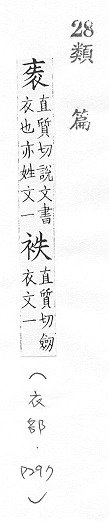 28
類篇
袠直質切說文書
衣也亦姓文一
袟直質切劒
衣文一
(衣部·